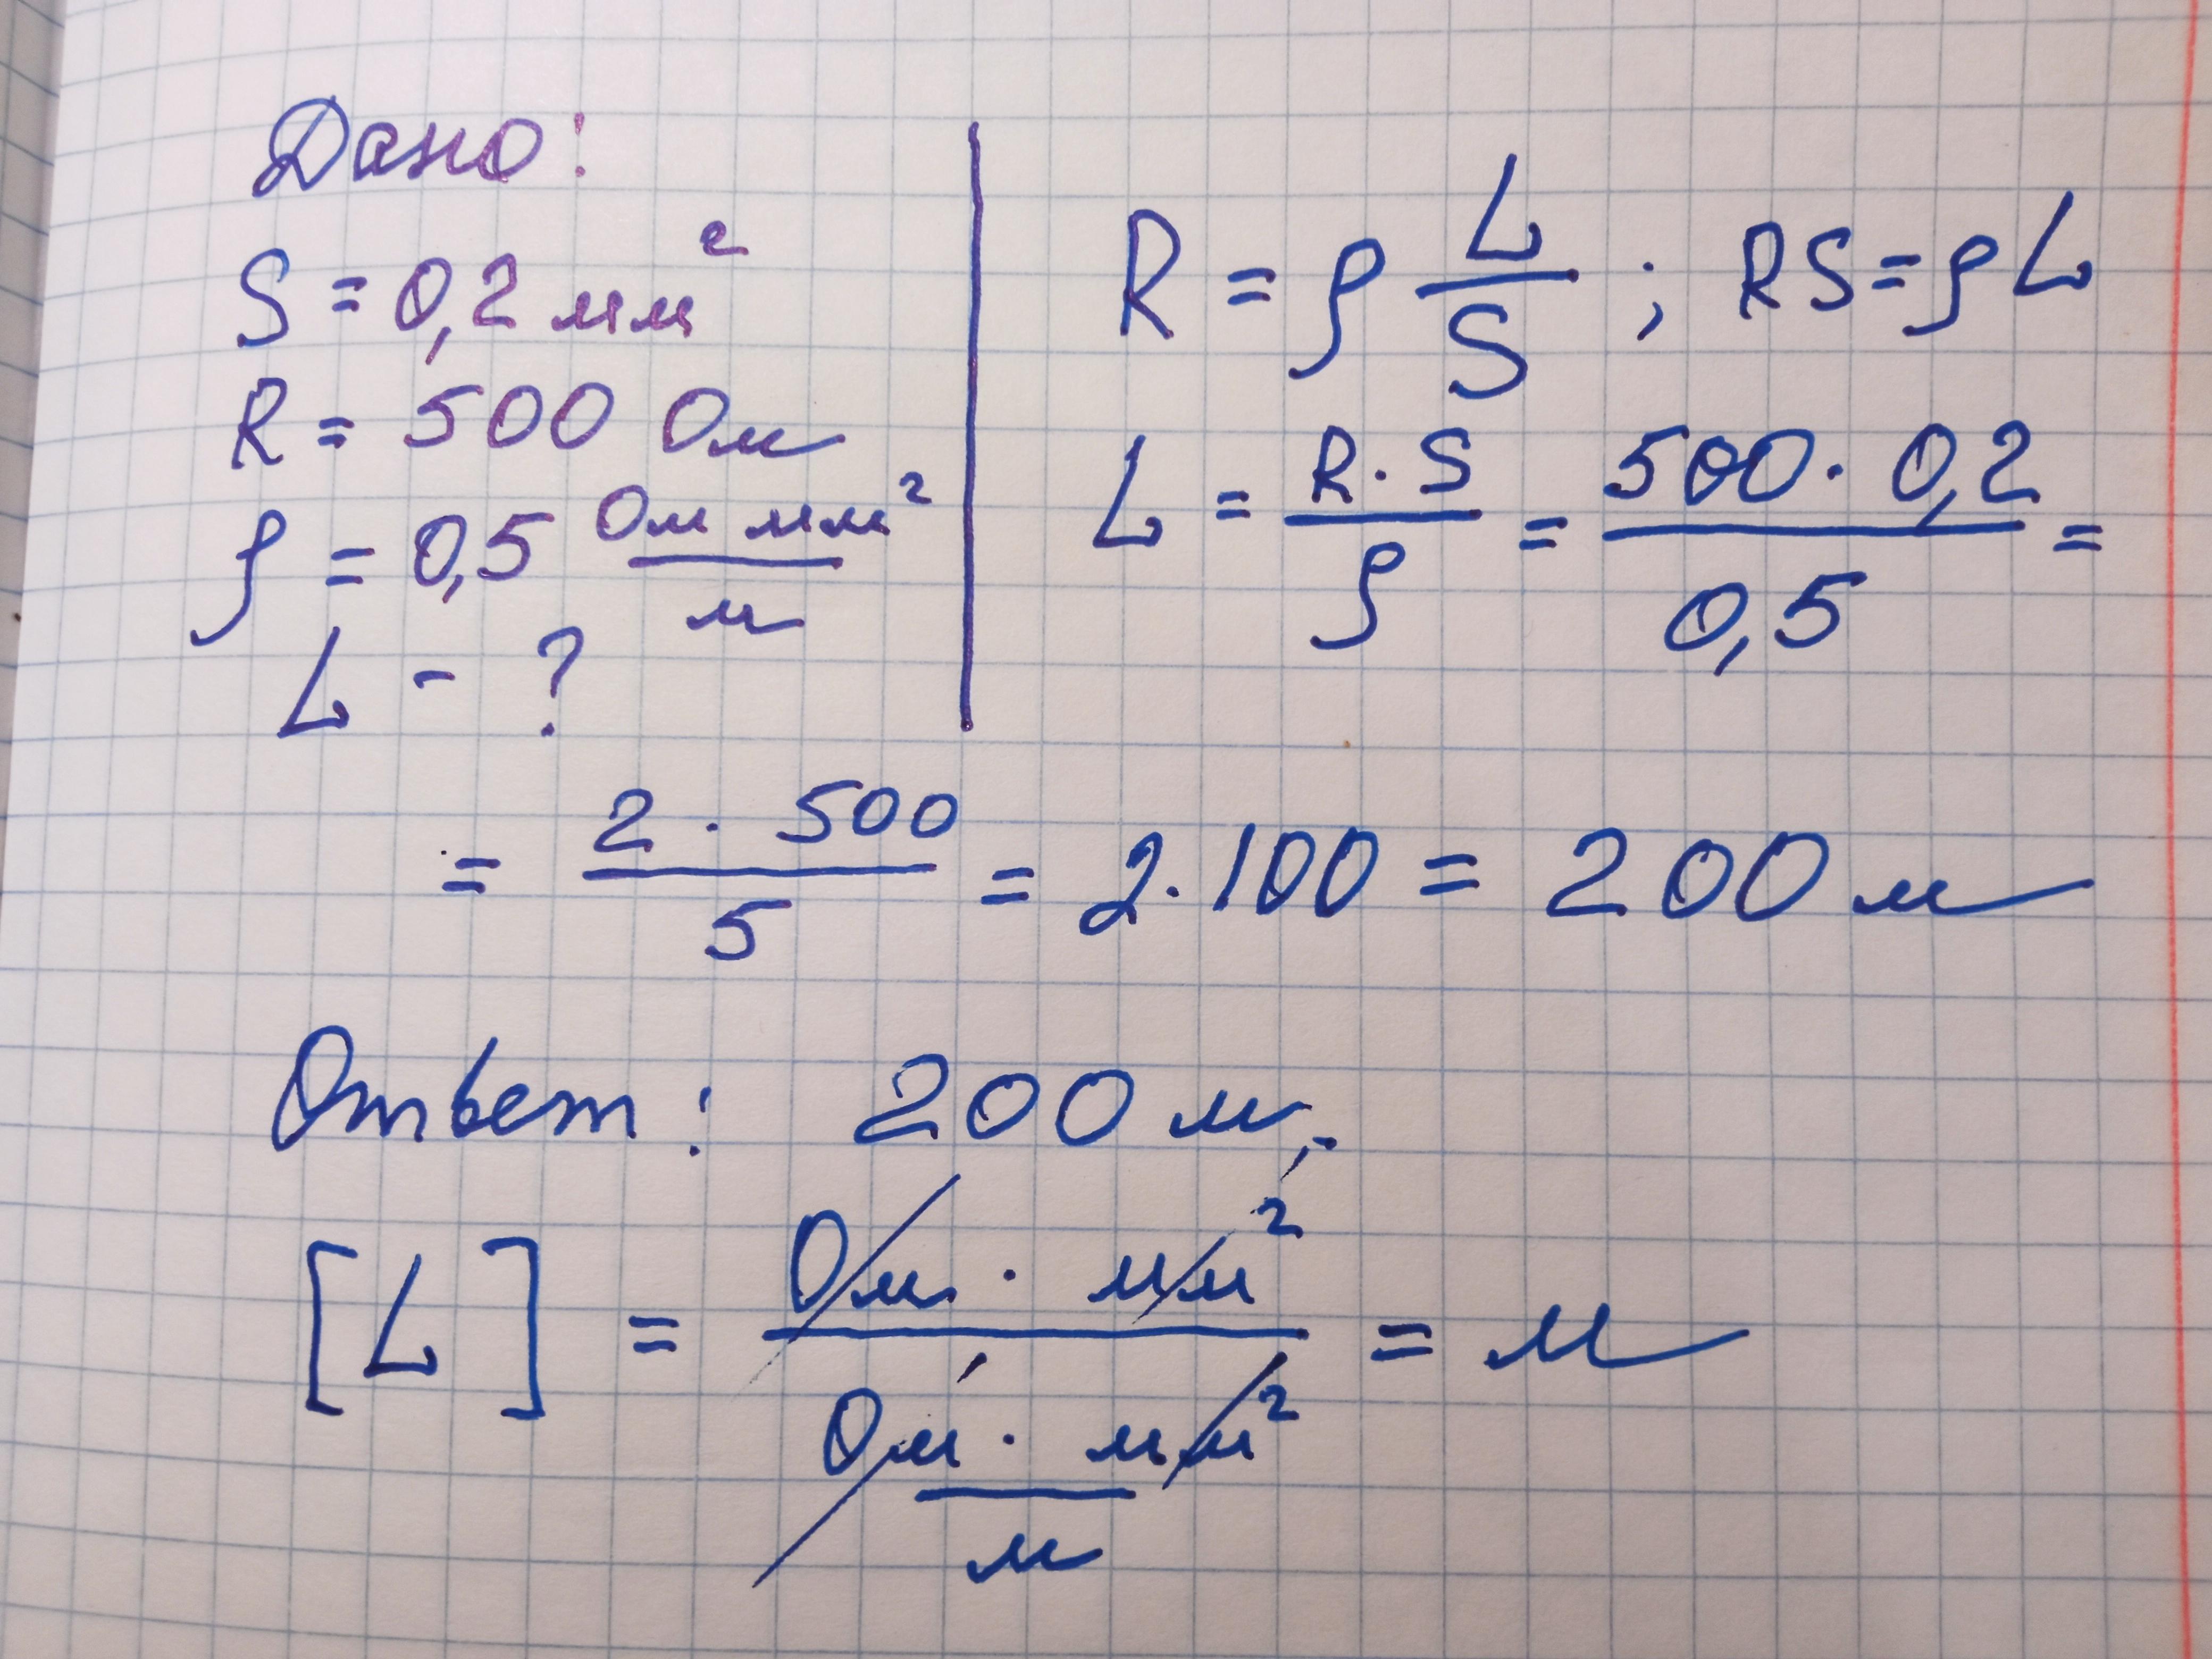 Дано:
S = 0,2 мм²
R = 500 Ом
ρ = 0,5 Ом мм²/м
L - ?
R = ρ L/S ; RS = ρL
L = R·S/ρ = 500·0,2/0,5 =
= 2·500/5 = 2·100 = 200 м
Ответ: 200 м.
[L] = Ом·мм²/(Ом·мм²/м) = м